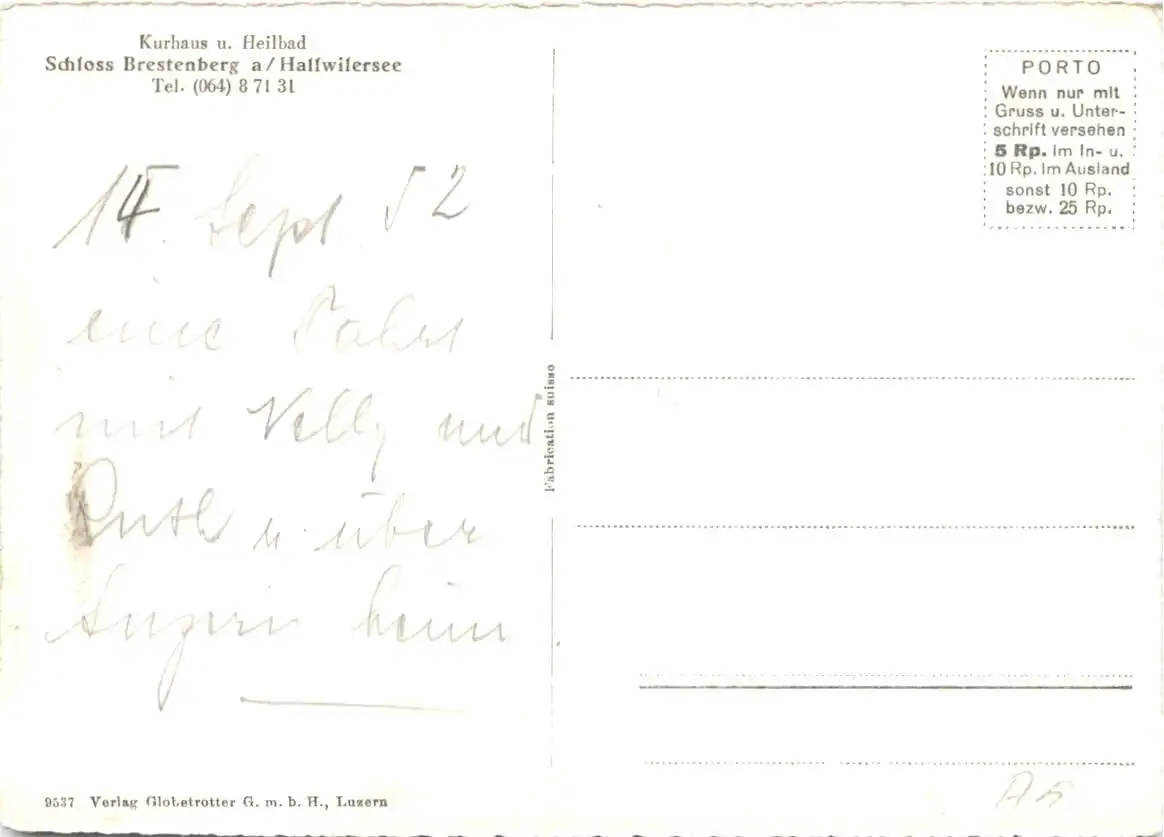 Kurhaus u. Heilbad
Schloss Brestenberg a/Hallwilersee
Tel. (064) 8 71 31
14. Sept. 52
eine Fahrt
mit Nelly und
Ruth u. über
Luzern heim
9537 Verlag Globetrotter G. m. b. H., Luzern
Fabrication suisse
PORTO
Wenn nur mit
Gruss u. Unter-
schrift versehen
5 Rp. im In- u.
10 Rp. im Ausland
sonst 10 Rp.
bezw. 25 Rp.